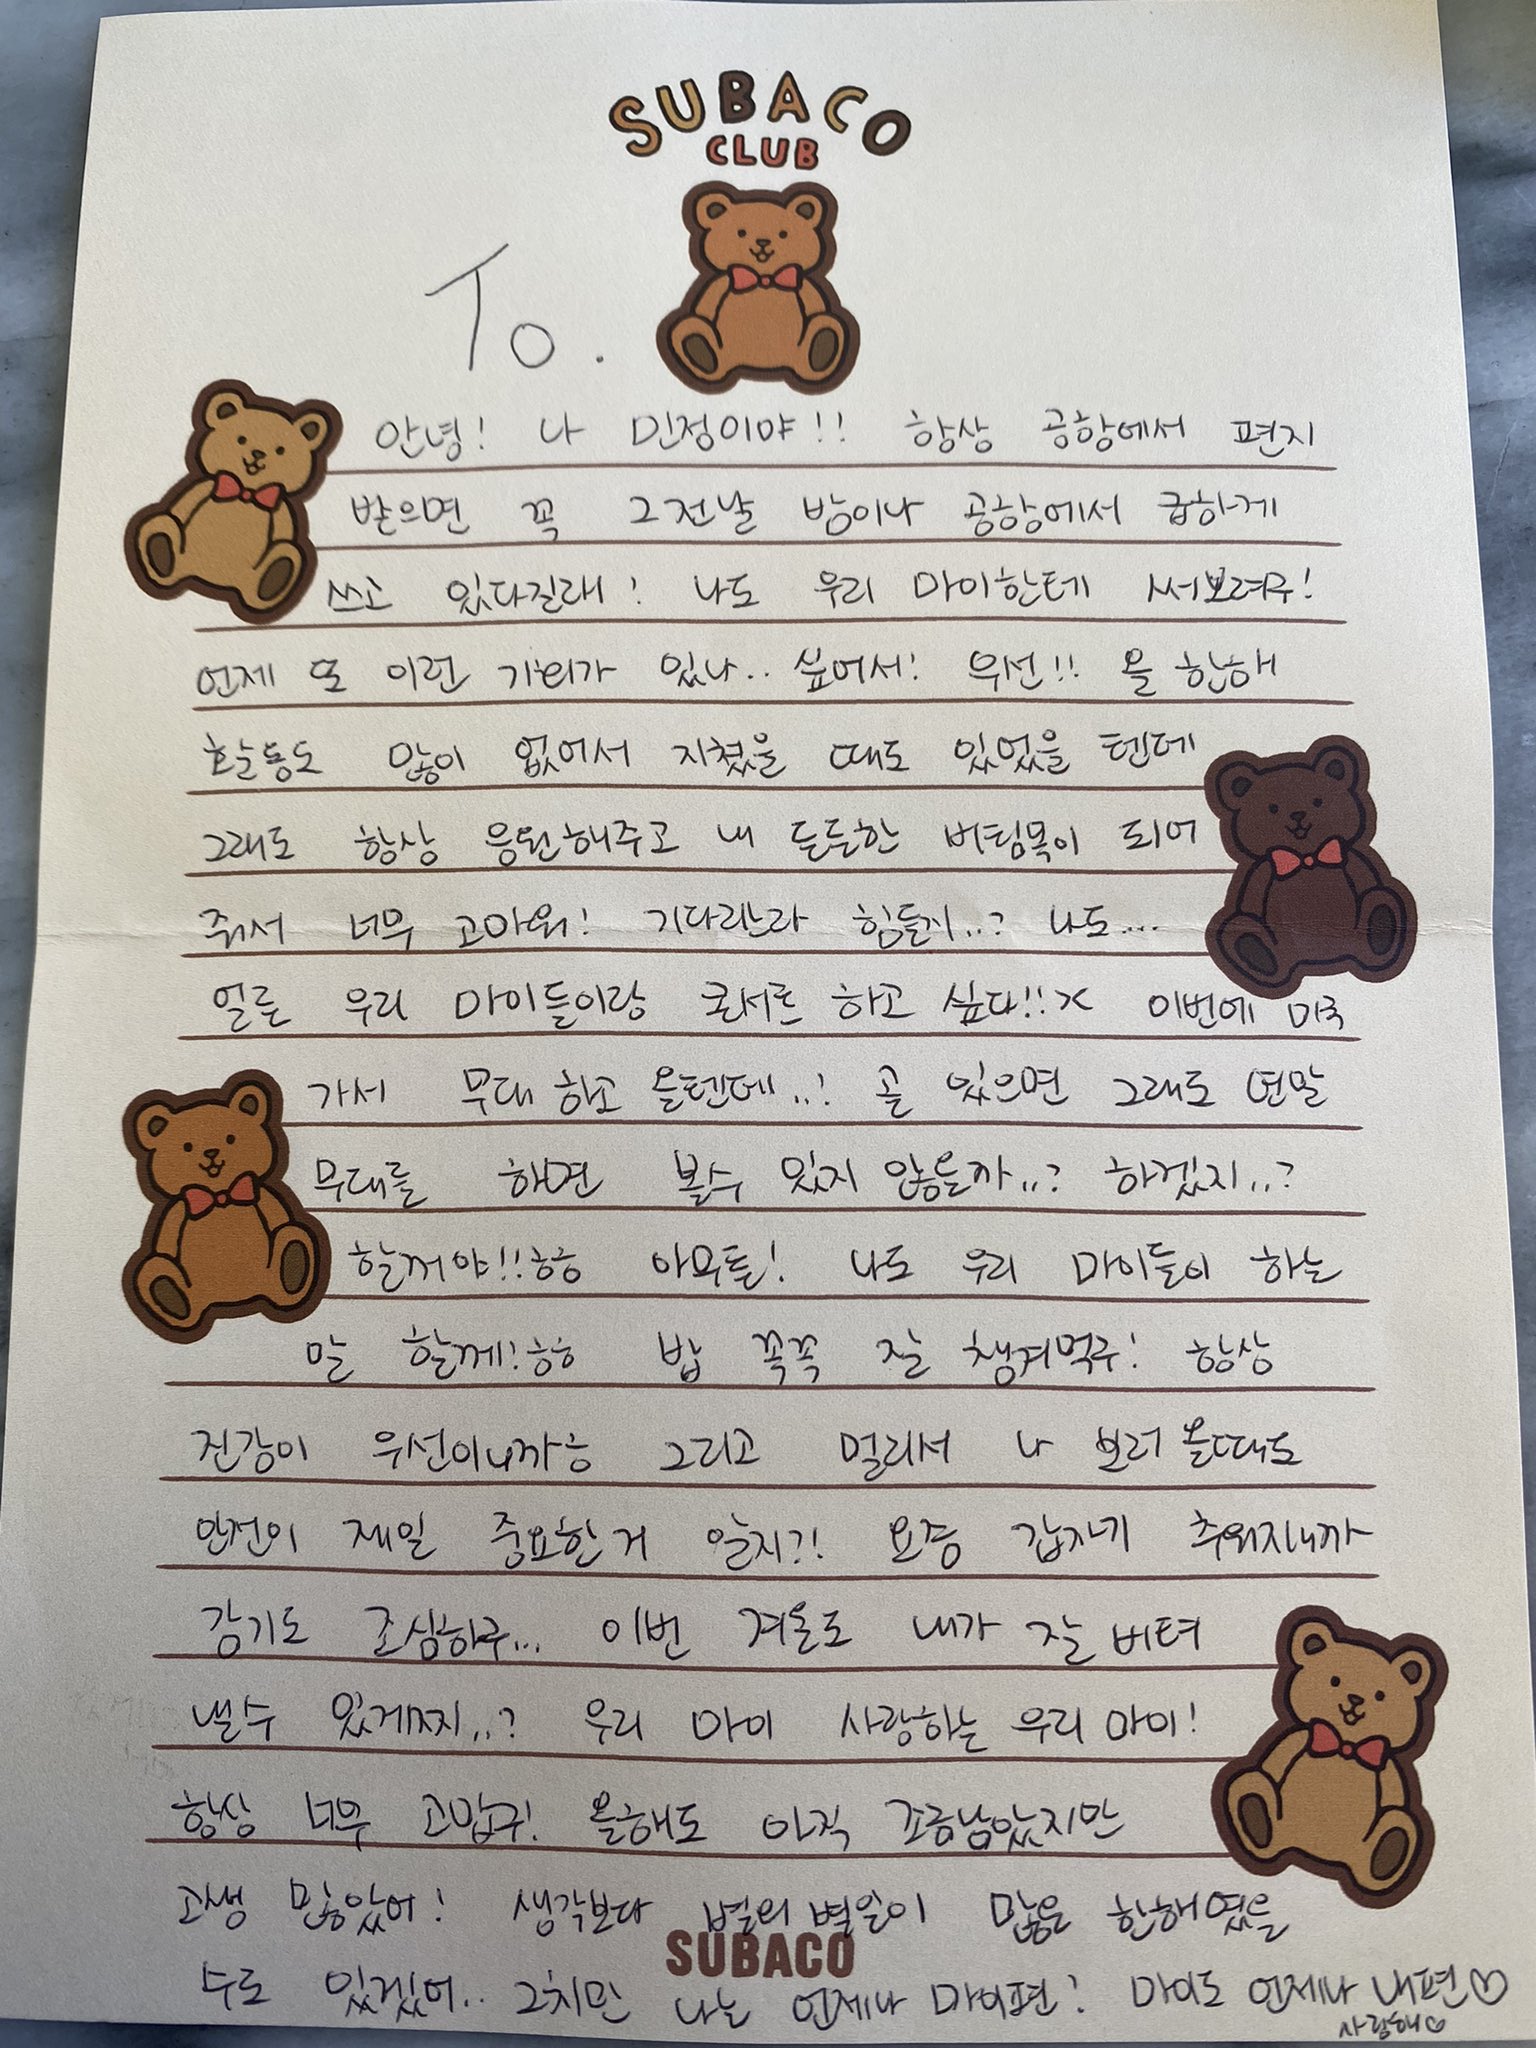 SUBACO
CLUB
To.
안녕! 나 민정이야!! 항상 공항에서 편지
받으면 꼭 그전날 밤이나 공항에서 급하게
쓰고 있다길래! 나도 우리 마이한테 써보려구!
언제 또 이런 기회가 있나.. 싶어서! 우선!! 올 한해
활동도 많이 없어서 지쳤을 때도 있었을 텐데
그래도 항상 응원해주고 내 든든한 버팀목이 되어
줘서 너무 고마워! 기다리느라 힘들지..? 나도....
얼른 우리 마이들이랑 콘서트 하고 싶다!! 이번에 미국
가서 무대 하고 올텐데..! 곧 있으면 그래도 연말
무대를 하면 볼수 있지 않을까..? 하겠지..?
할꺼야!!ㅎㅎ 아무튼! 나도 우리 마이들이 하는
말 할께!ㅎㅎ 밥 꼭꼭 잘 챙겨먹구! 항상
건강이 우선이니까ㅎ 그리고 멀리서 나 보러 올때도
안전이 제일 중요한거 알지?! 요즘 갑자기 추워지니까
감기도 조심하구... 이번 겨울도 내가 잘 버텨
낼수 있게찌..? 우리 마이 사랑하는 우리 마이!
항상 너무 고맙구! 올해도 아직 조금남았지만
고생 많았어! 생각보다 별의 별일이 많은 한해였을
수도 있겠어.. 그치만 나는 언제나 마이편! 마이도 언제나 내편♡
사랑해♡
SUBACO